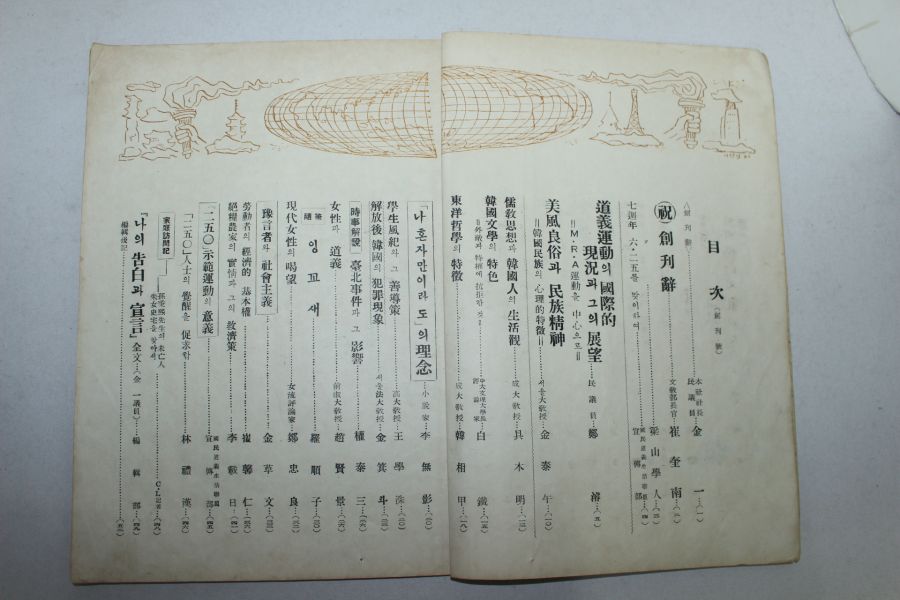 目次 (創刊號)
八創刊辭 本社社長 民議員 金 一 (一)
祝 創刊辭 文敎部長官 崔奎南 (二)
七週年 六·二五를 맞이하여 翠山學人 (三)
國民道義生活聯盟 宣傳部 (四)
道義運動의 國際的現況과 그의 展望 民議員 鄭濬 (五)
=M·R·A運動을 中心으로=
美風良俗과 民族精神 서울大敎授 金泰午 (一〇)
=韓國民族의 心理的特徵=
儒敎思想과 韓國人의 生活觀 成大敎授 具本明
韓國文學의 特色 中大文理大學長 評論家 白鐵 (一五)
=外敵과 特權에 抗拒한 것=
東洋哲學의 特徵 成大敎授 韓相甲 (一八)
「나 혼자만이라도」의 理念 小說家 李無影 (二〇)
學生風紀와 그 善導策 高大敎授 王學洙
解放後 韓國의 犯罪現象 서울法大敎授 金箕斗
時事解說 臺北事件과 그 影響 權泰三
女性과 道義 前淑大敎授 趙賢景
隨筆 잉꼬새 羅順子 (三〇)
現代女性의 喝望 女流評論家 鄭忠良
豫言者와 社會主義 金草文
勞動者의 經濟的 基本權 崔鄭仁
絶糧農家의 實情과 그의 救濟策 李毅日
一二五〇示範運動의 意義 國民道義生活聯盟 宣傳部
「一二五〇」人士의 覺醒을 促求함 林禮漢
家庭訪問記 孫秉熙先生의 未亡人 朱女史宅을 찾아서 C·L記者
「나의 告白과 宣言」 全文 (金一議員) 編輯部
編輯後記